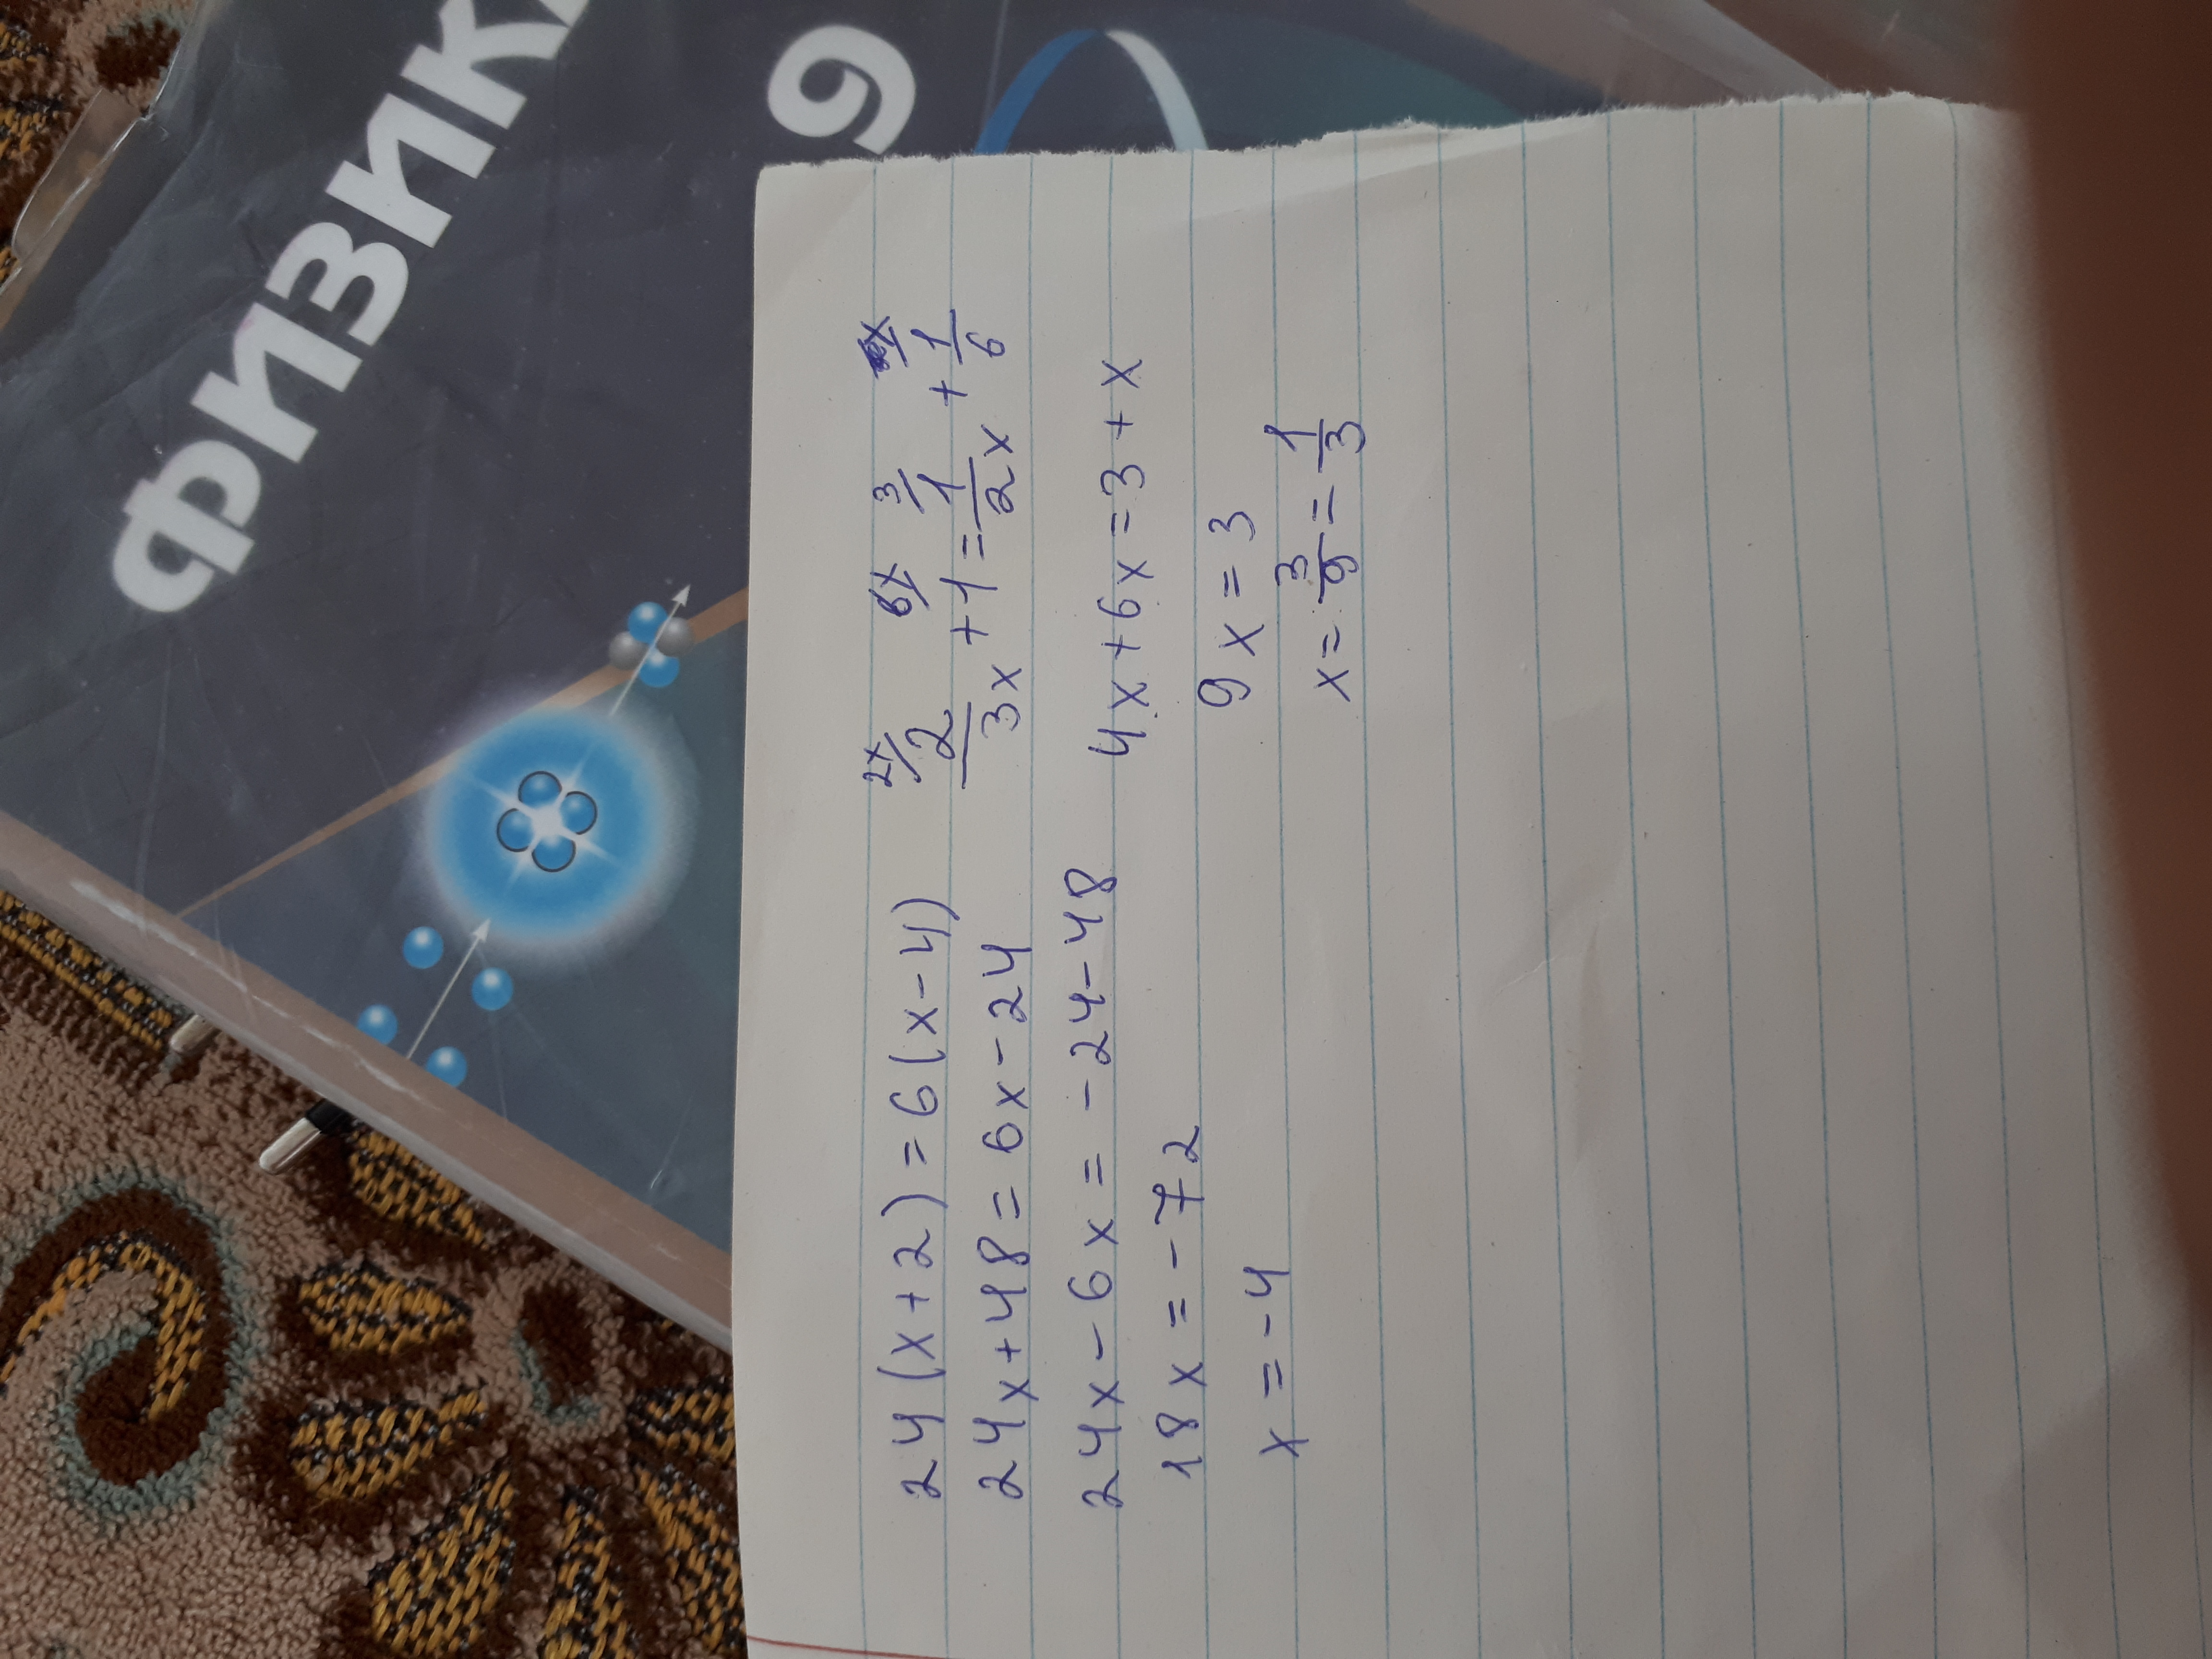 ФИЗИК
9
24(x+2)=6(x-4)
24x+48=6x-24
24x-6x=-24-48
18x=-72
x=-4
2x/ 6x/ 3/ x/
2/3x +1= 1/2x + 1/6
4x+6x=3+x
9x=3
x=3/9=1/3